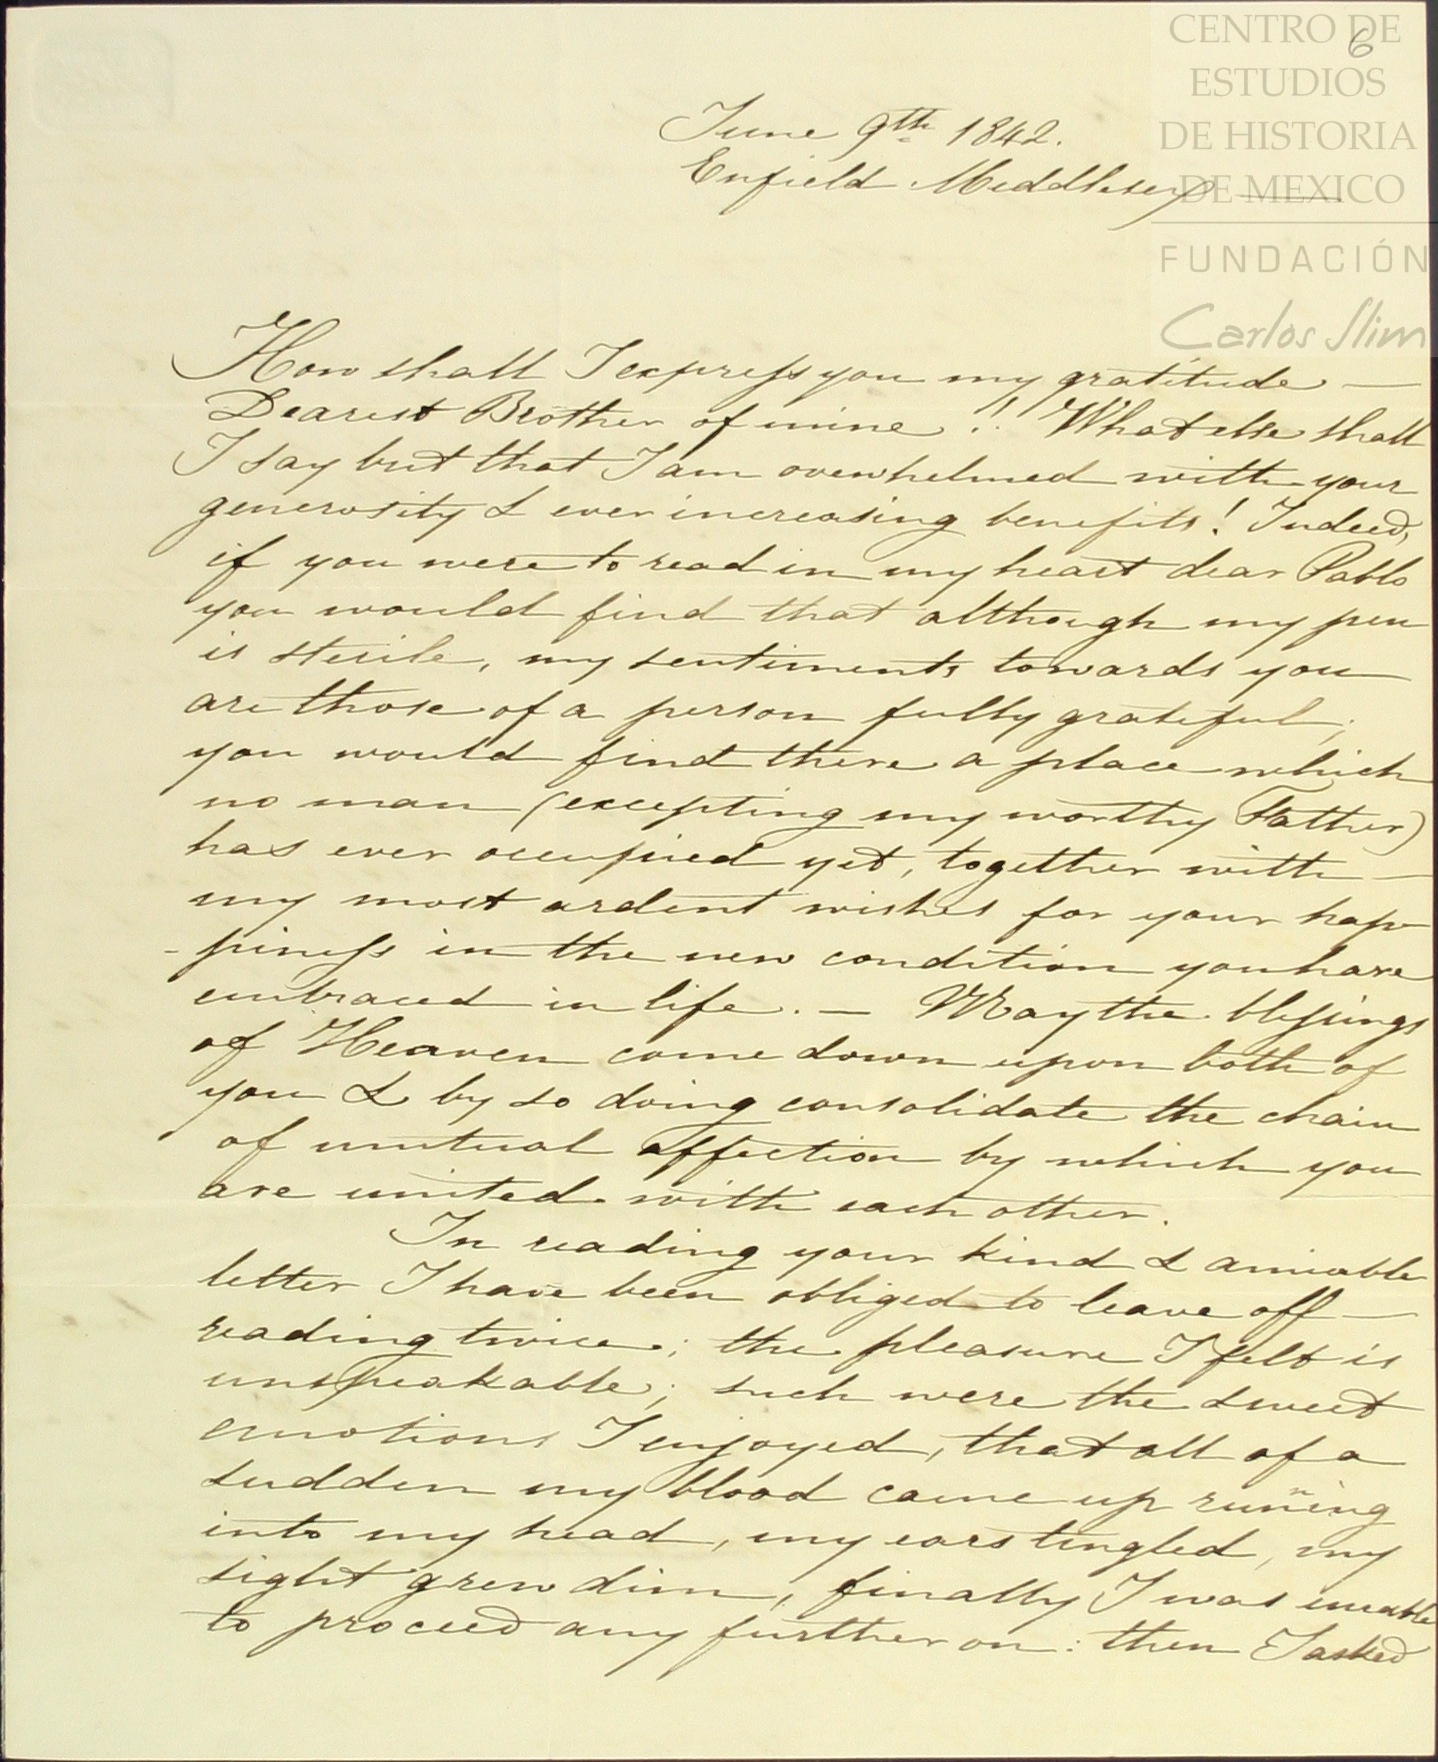 CENTRO DE
6
ESTUDIOS
DE HISTORIA
DE MEXICO
FUNDACIÓN
Carlos Slim
June 9th 1842.
Enfield Middlesex
How shall I express you my gratitude —
Dearest Brother of mine!! What else shall
I say but that I am overwhelmed with your
generosity & ever increasing benefits! Indeed,
if you were to read in my heart dear Pablo
you would find that although my pen
is sterile, my sentiments towards you
are those of a person fully grateful;
you would find there a place which
no man (excepting my worthy Father)
has ever occupied yet, together with —
my most ardent wishes for your hap-
-piness in the new condition you have
embraced in life. — May the blessings
of Heaven come down upon both of
you & by so doing consolidate the chain
of mutual affection by which you
are united with each other.
In reading your kind & amiable
letter I have been obliged to leave off —
reading twice; the pleasure I felt is
unspeakable; such were the sweet
emotions I enjoyed, that all of a
sudden my blood came up running
into my head, my ears tingled, my
sight grew dim, finally I was unable
to proceed any further on: then I asked